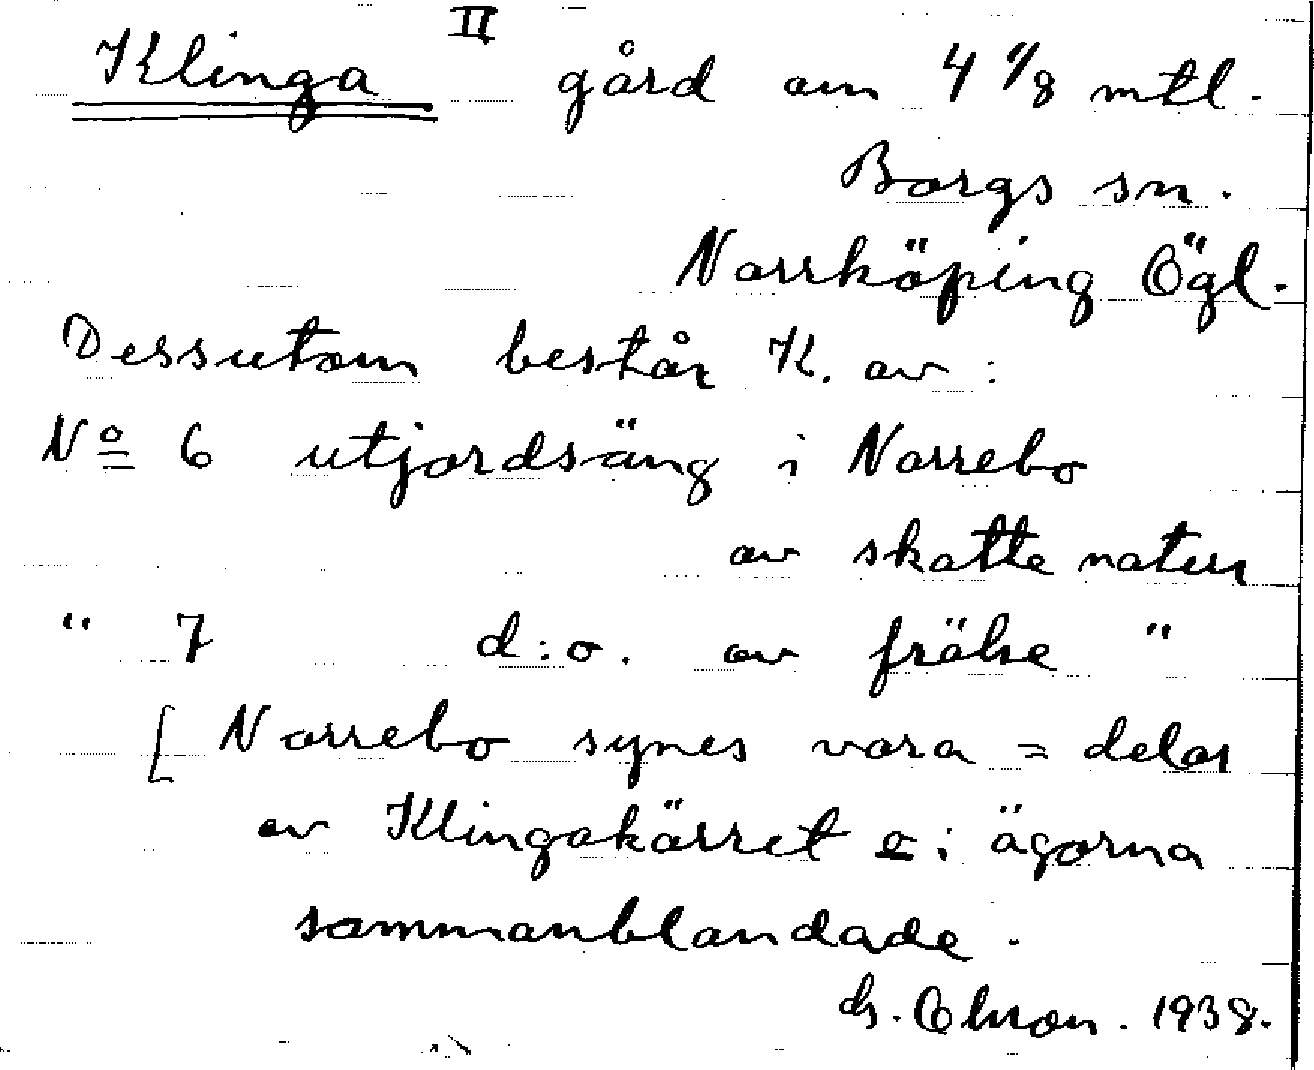 Klinga II gård om 4 1/8 mtl.
Borgs sn.
Norrköping Ögl.
Dessutom består K. av :
No 6 utjordsäng i Norrebo
av skatte natur
" 7 d:o. av frälse "
[ Norrebo synes vara = delar
av Klingakärret o i ägorna
sammanblandade.
Olsson. 1938.